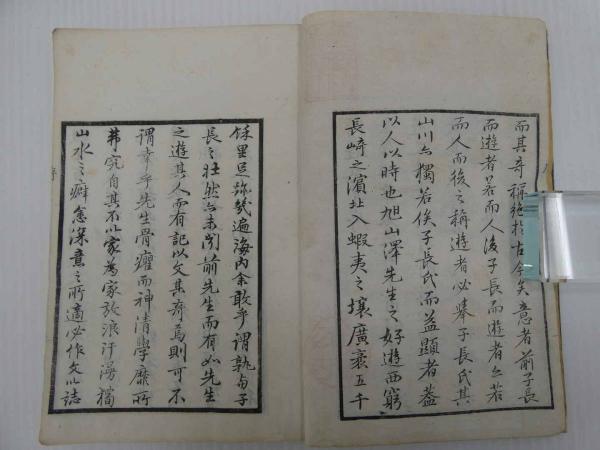 而其奇稱絶於古今矣意者前子長
而遊者若而人後子長而遊者亦若
而人而後之稱遊者必舉子長氏其
山川亦獨若俟子長氏而益顯者蓋
以人以時也旭山澤先生之好遊西窮
長崎之濱北入蝦夷之壤廣袤五千
餘里足跡幾遍海内余敢乎謂孰與子
長之壯然亦未聞前先生而有如先生
之遊其人而有記以文其奇焉則可不
謂幸乎先生骨癯而神清學靡所
弗究自其不以家為家放浪汗漫獨
山水之癖愈深意之所適必作文以誌